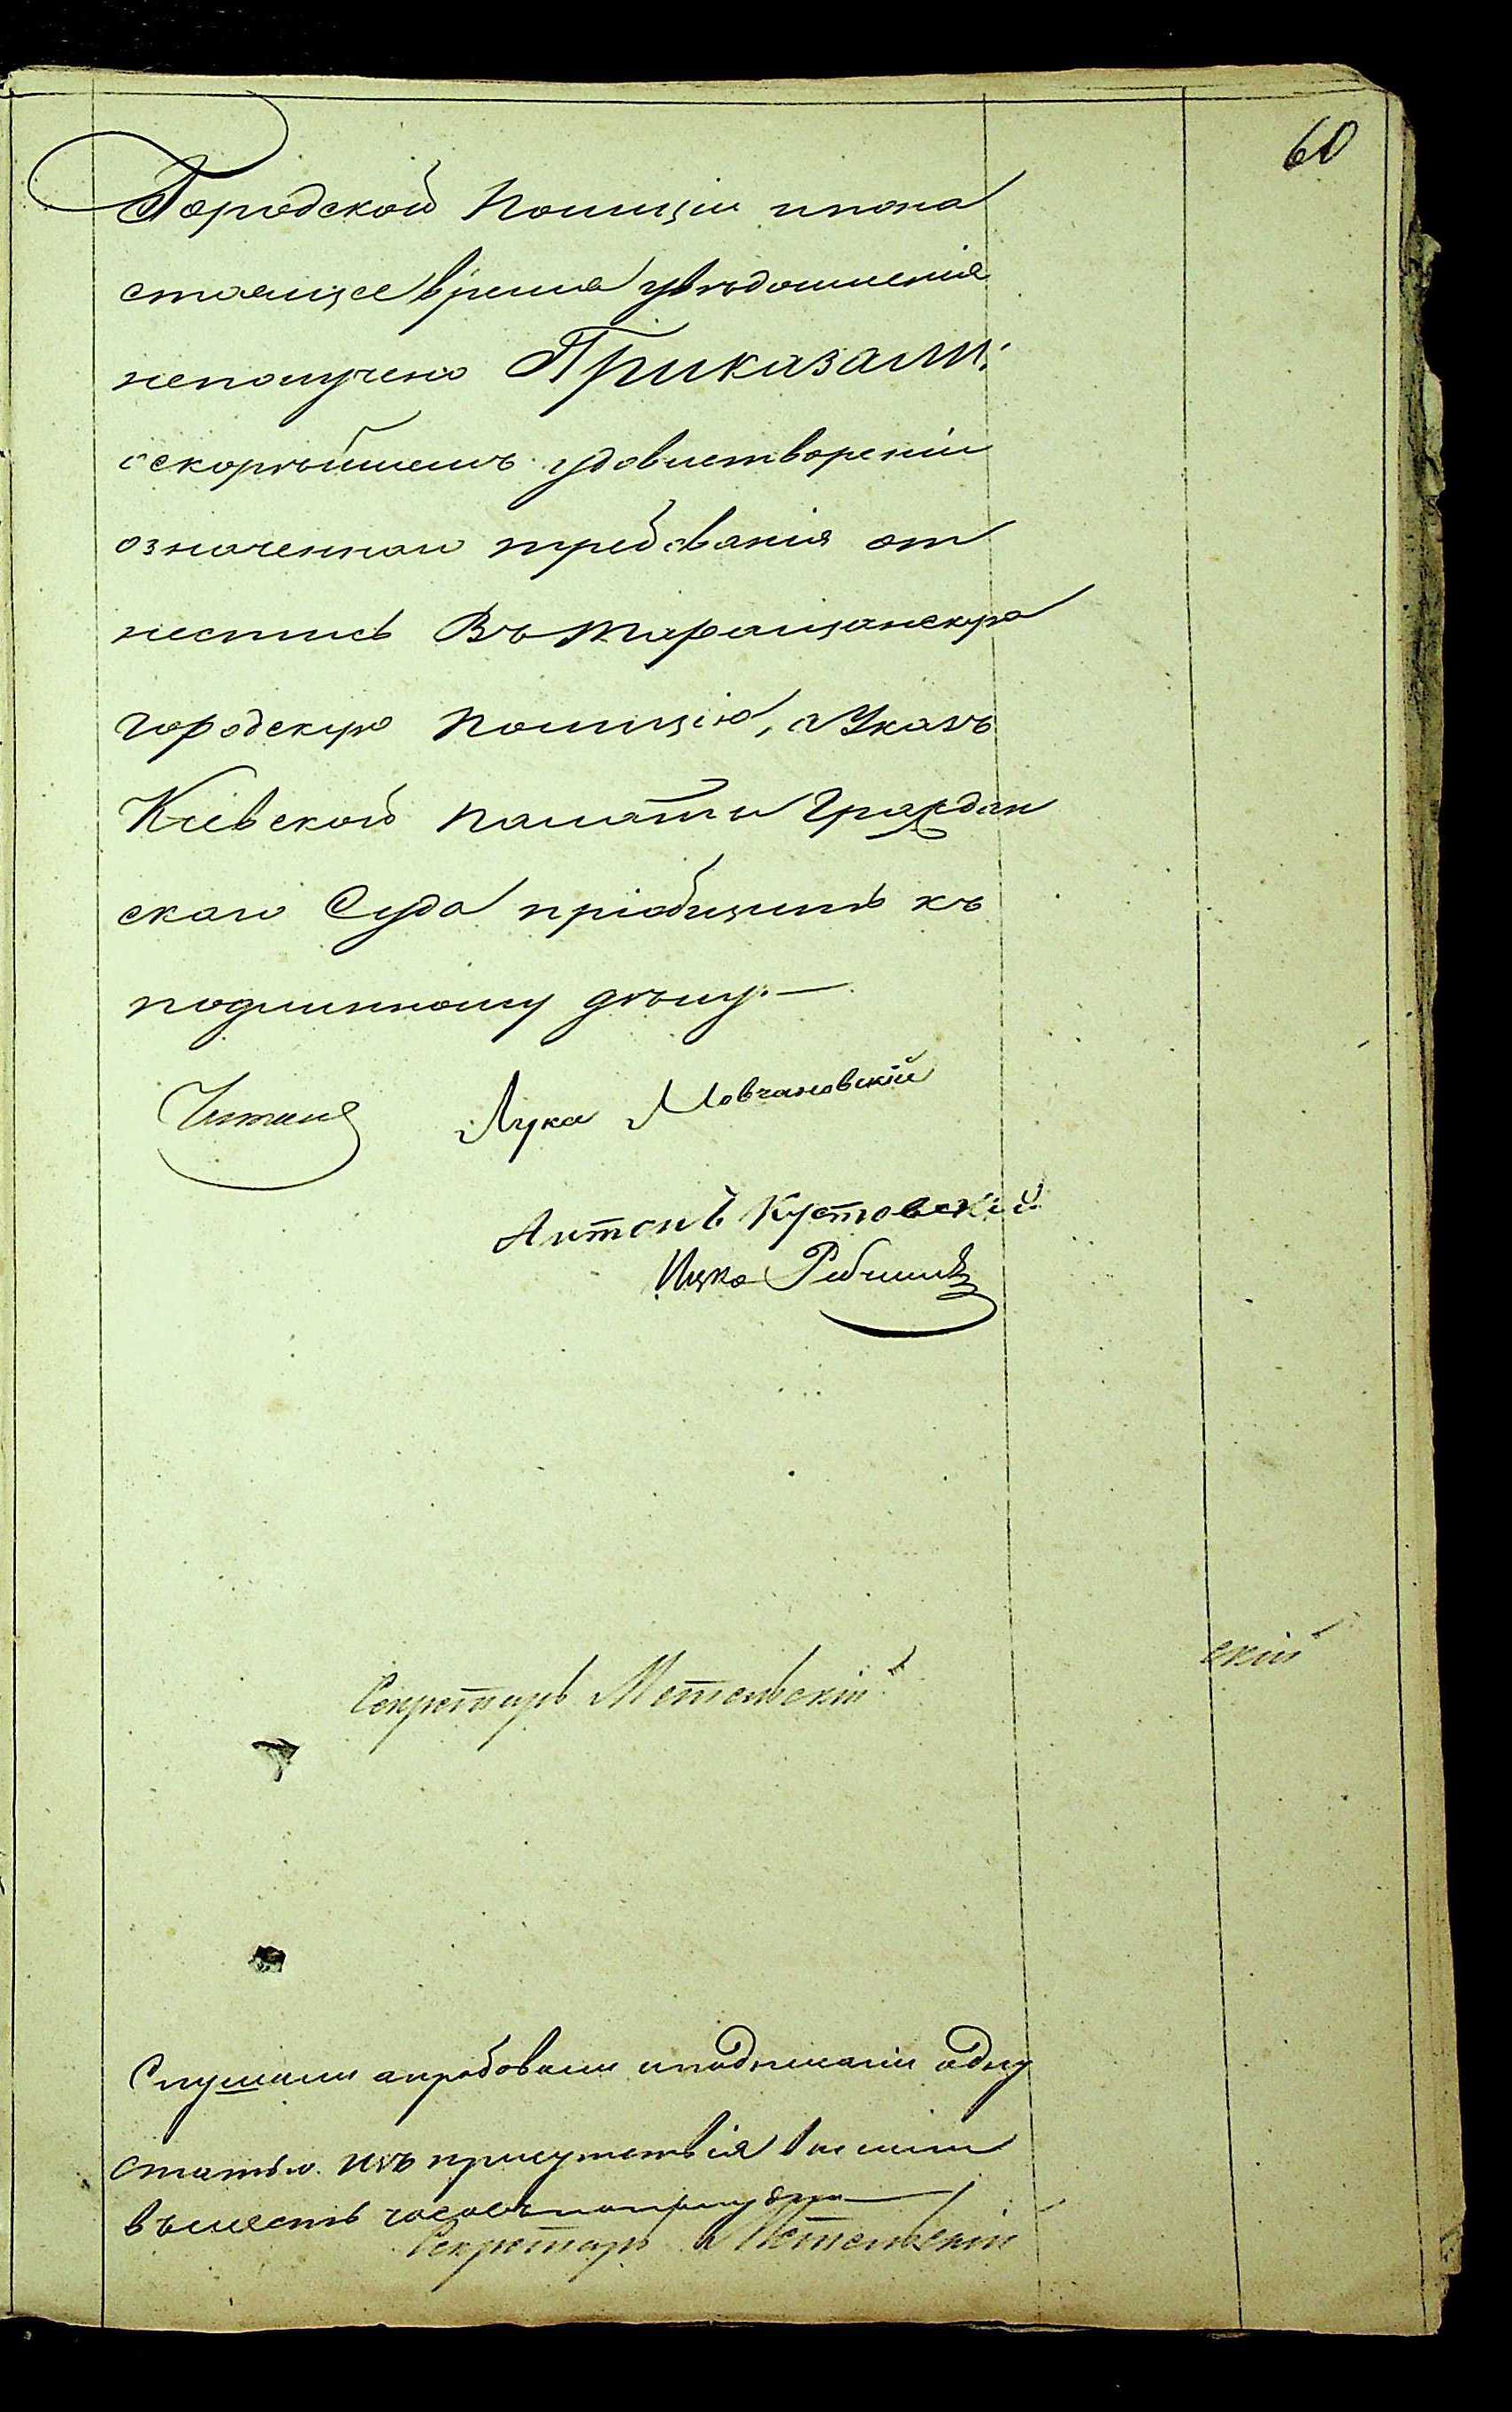 60
Городской Полиціи и пона
стоящее время увѣдомленія
неполучено Приказали:
оскорѣйшемъ удовлетвореніи
означеннаго требованія от
нестись Въ Таращанскую
городскую Полицію, а Указъ
Кіевской Палаты Граждан
скаго Суда пріобщить къ
подлинному дѣлу.—
Лука Мовчановскій
Антонъ Кустовскій
Ицко
Секретарь Метельскій
скій
Слушали апробовали и подписали одну
статью. Изъ присутствія вышли
въ шесть часовъ пополудни
Секретарь Метельскій